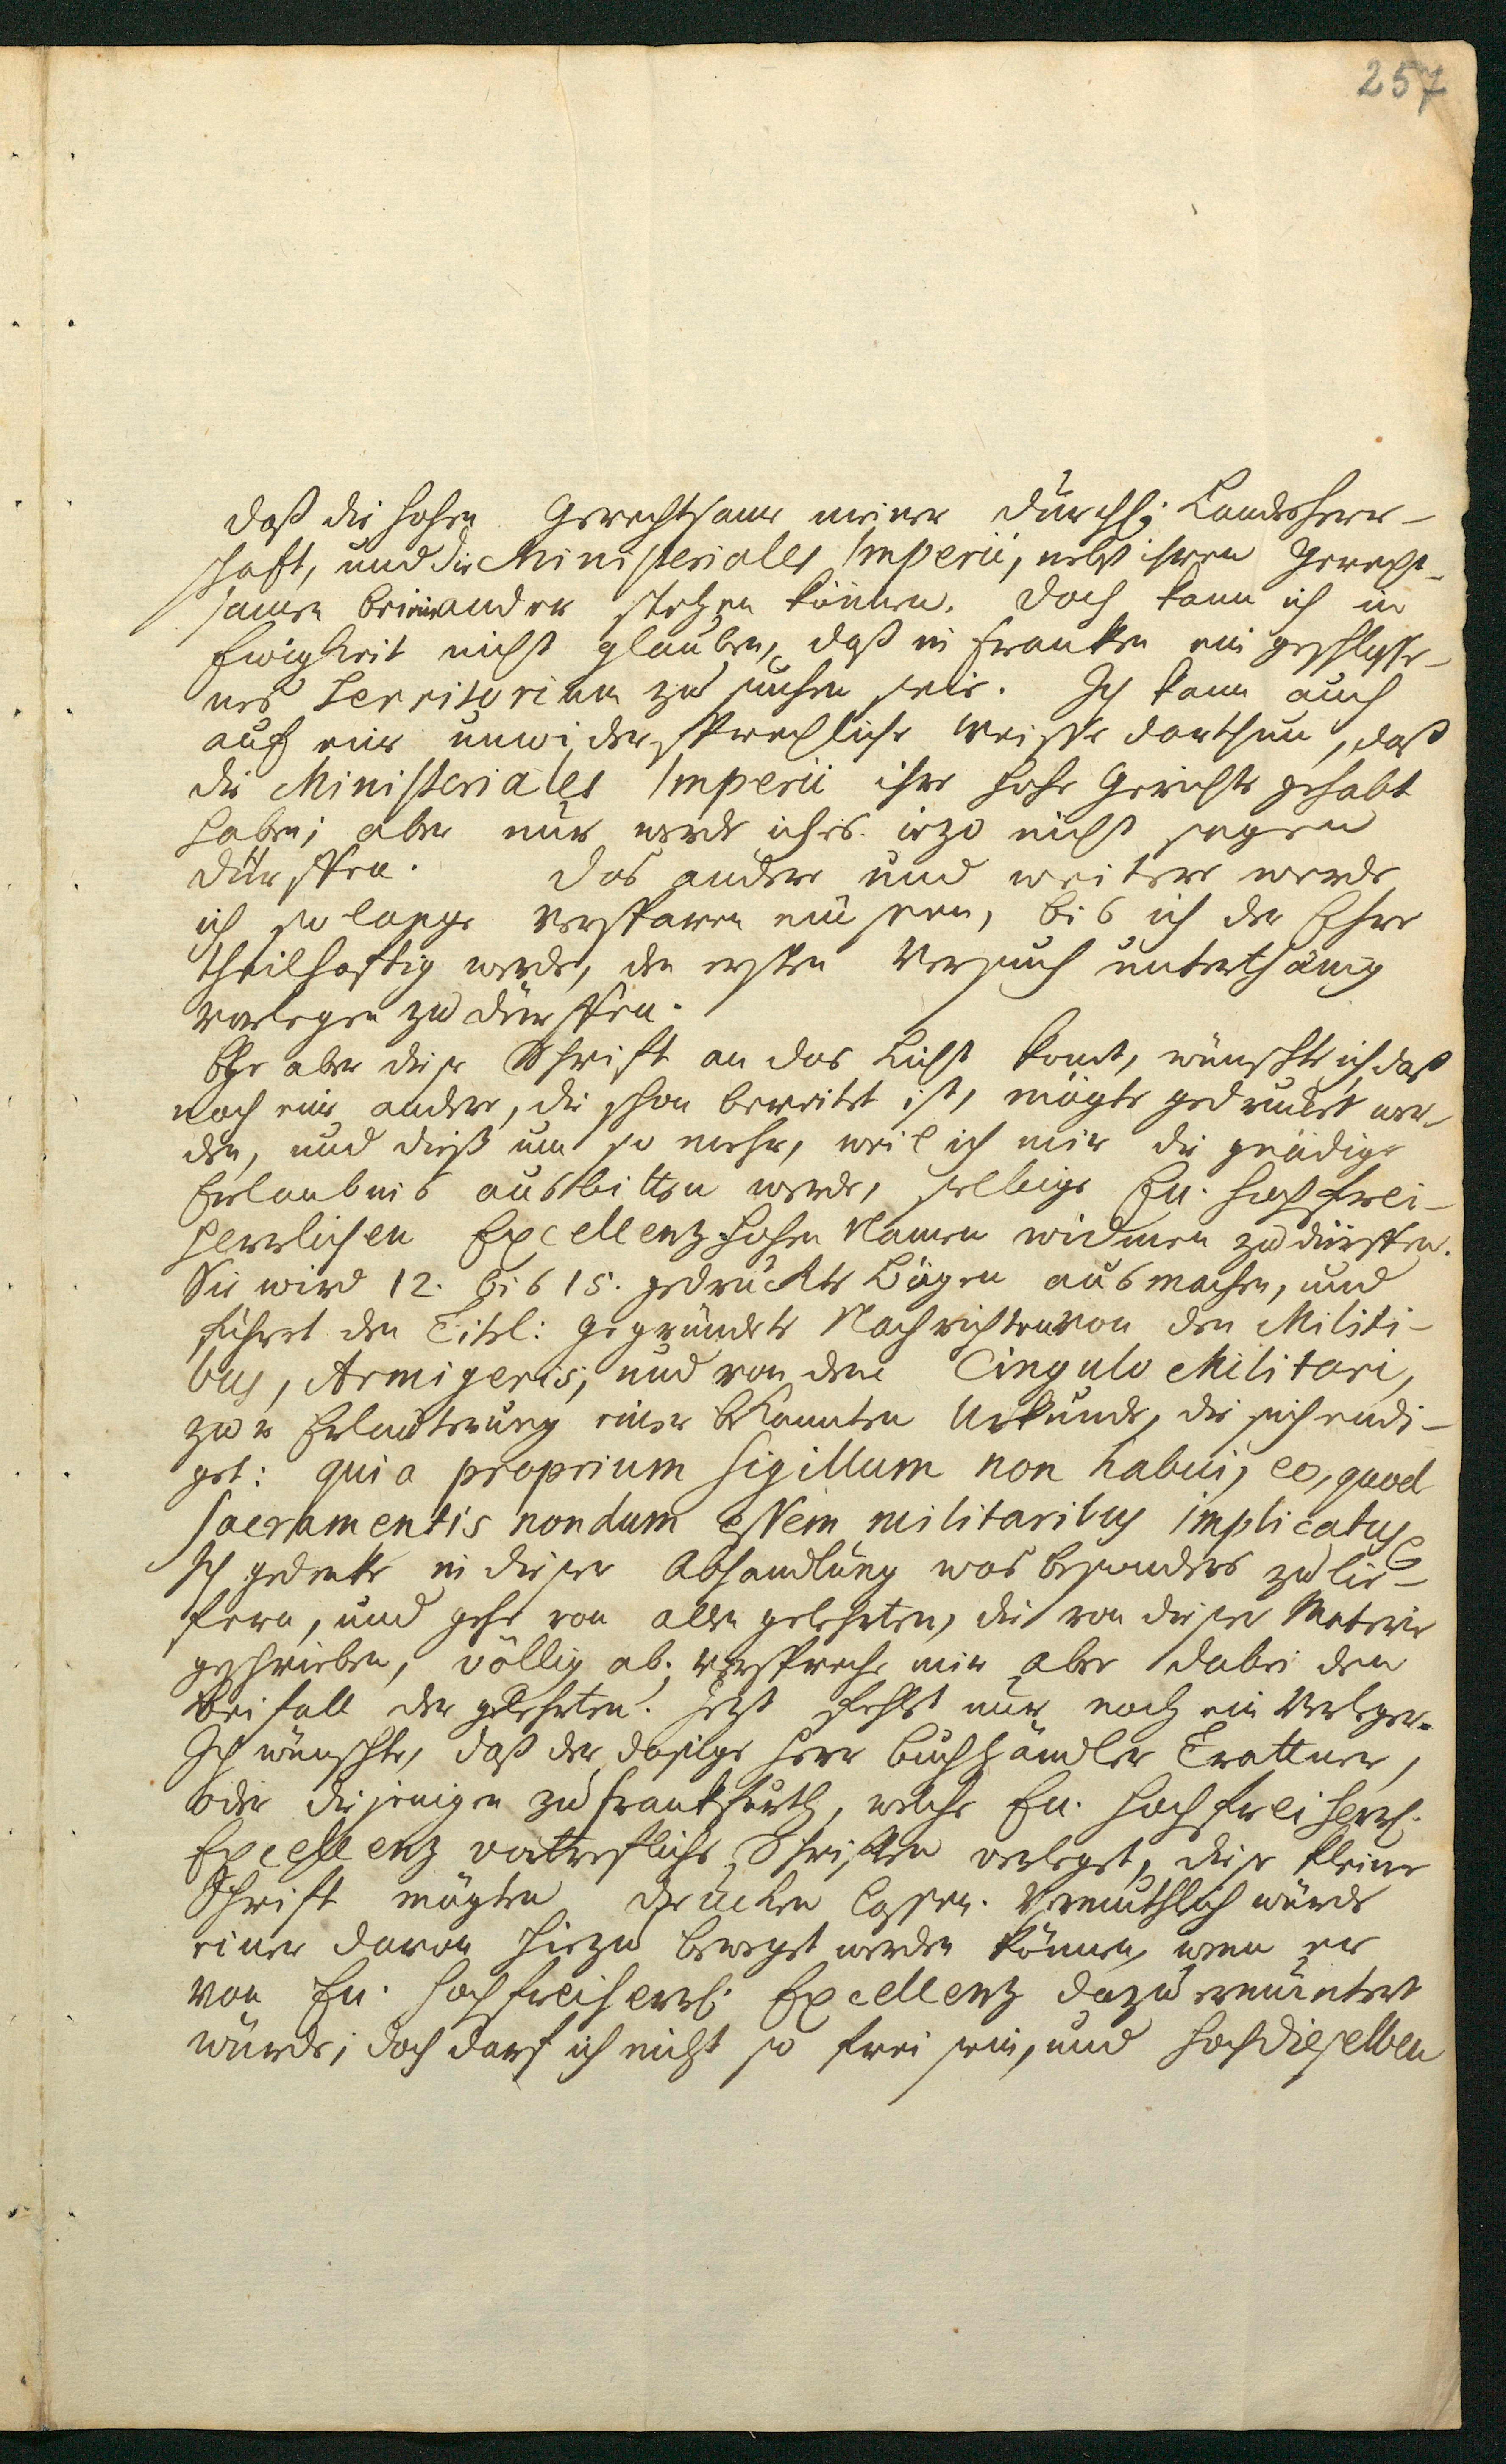 257
daß die hohen Gerechtsame meiner Durchl; Landesherr-
schaft, und die Ministeriales Imperii, nebst ihren Gerecht-
samen beieinander stehen können. Doch kann ich in
Ewigkeit nicht glauben, daß in Franken ein geschlosse-
nes Territorium zu suchen seie. Ich kann auch
auf eine unwidersprechliche Weisse darthun, daß
die Ministeriales Imperii ihre hohe Gerichte gehabt
haben; aber nur werde ichs iezo nicht sagen
dürffen. Das andere und weitere werde
ich so lange versparen müssen, bis ich der Ehre
theilhaftig werde, den ersten Versuch unterthänig
vorlegen zu dürffen.
Ehe aber diese Schrift an das Licht komt, wünschte ich, daß
noch eine andere, die schon bereitet ist, mögte gedruckt wer-
den, und dieß um so mehr, weil ich mir die gnädige
Erlaubnis ausbitten werde, selbige Eu. Hochfrei-
herrlichen Excellenz hohen Namen widmen zu dürffen.
Sie wird 12. bis 15. gedruckte Bögen ausmachen, und
führet den Titel: Gegründete Nachrichten von den Militi-
bus, Armigeris, und von dem Cingulo Militari,
zur Erläuterung einer bekannten Urkunde, die sich endi-
get: quia proprium sigillum non habui, eo, quod
sacramentis nondum essem militaribus implicatus.
Ich gedenke in dieser Abhandlung was besonders zu lie-
fern, und gehe von allen gelehrten, die von dieser Materie
geschrieben, völlig ab; verspreche mir aber dabei den
Beifall der gelehrten. Jetzt fehlet nur noch ein Verleger.
Ich wünschte, daß der dasige Herr Buchhändler Trattner,
oder diejenigen zu Frankfurth, welche Eu. Hochfreiherrl.
Excellenz vortrefliche Schriften verleget, diese kleine
Schrift mögten drucken lassen. Vermuthlich würde
einer davon hiezu beweget werden können, wenn er
von Eu. Hochfreiherrl. Excellenz dazu ermuntert
würde; doch darf ich nicht so frei sein, und Hochdieselben